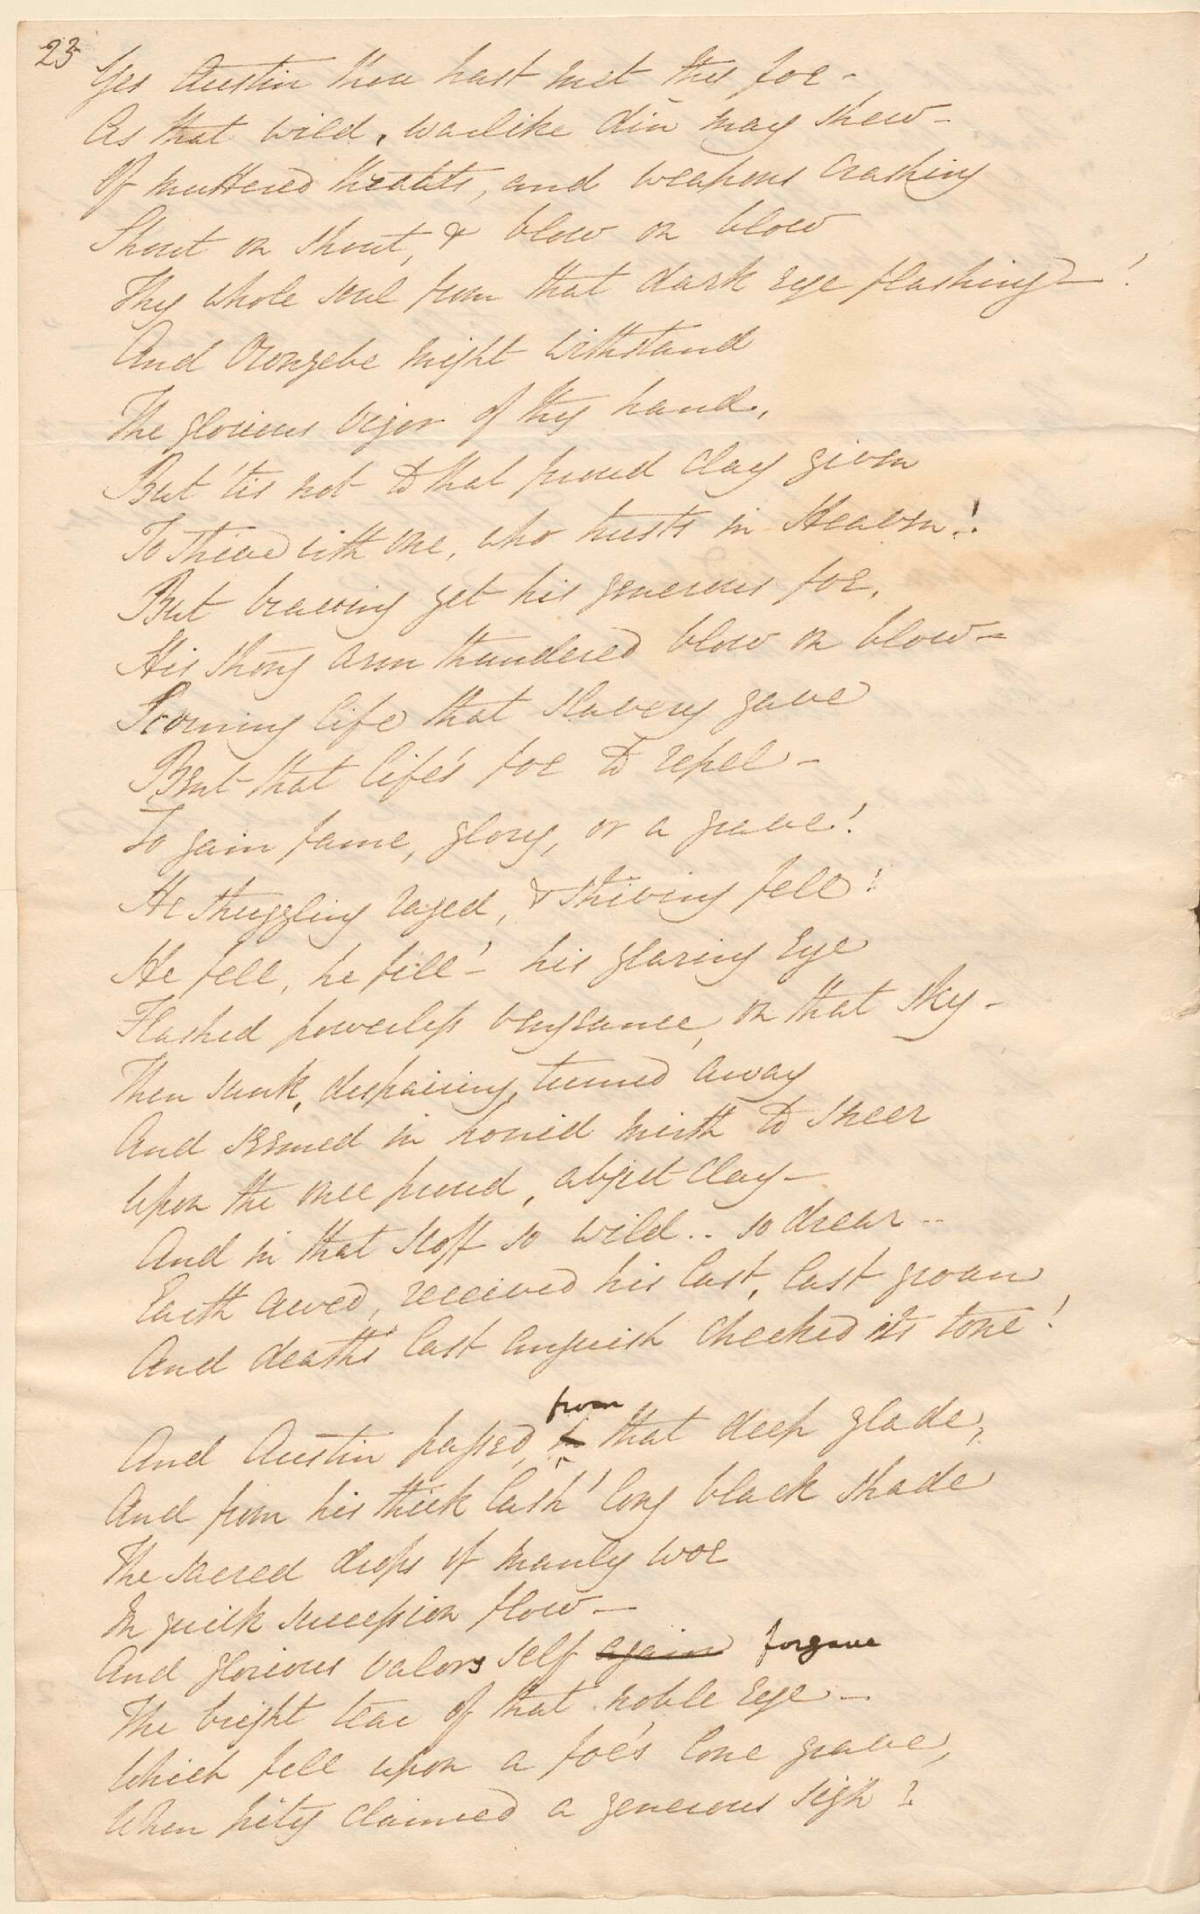 23
Yes Austin thou hast met thy foe -
As that wild, warlike din may shew -
Of muttered threats, and weapons crashing
Shout on shout, & blow on blow
Thy whole soul from that dark eye flashing - !
And Orongebe might withstand
The glorious vigor of thy hand,
But 'tis not to that proud clay given
To strive with one, who trusts in Heaven!
But braving yet his generous foe,
His strong arm thundered blow on blow -
Scorning life that slavery gave
Bent that life's foe to repel -
To gain fame, glory, or a grave!
He struggling raged, & striving fell!
He fell, he fell! - his glaring eye
Flashed powerless vengeance, on that sky -
Then sunk, despairing, turned away
And seemed in horrid mirth to sneer
Upon the once proud, abject clay -
And in that scoff so wild .. so drear ..
Earth awed, received his last, last groan
And death's last anguish checked its tone!
And Austin passed, from that deep glade,
And from his thick lash' long black shade
The sacred drops of manly woe
In quick succession flow -
And glorious valors self again forgave
The bright tear of that noble eye -
Which fell upon a foe's lone grave,
When pity claimed a generous sigh!